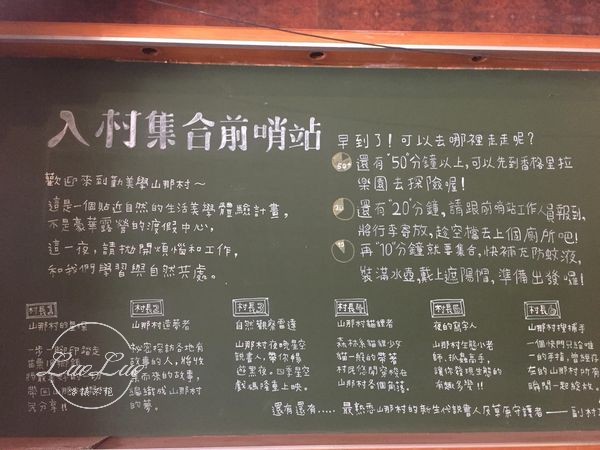 入村集合前哨站
歡迎來到勤美學山那村～
這是一個貼近自然的生活美學體驗計畫，
不是豪華露營的渡假中心，
這一夜，請拋開煩惱和工作，
和我們學習與自然共處。
早到了！可以去哪裡走走呢？
還有"50"分鐘以上，可以先到香格里拉
樂園去探險喔！
還有"20"分鐘，請跟前哨站工作人員報到，
將行李寄放，趁空檔去上個廁所吧！
再"10"分鐘就要集合，快補充防蚊液，
裝滿水壺，戴上遮陽帽，準備出發囉！
村長1
山那村的
一步一腳印踏走
帶回山那
民分享！！
村長2
山那村造夢者
秘密探訪各地有
故事的人，將收
集而來的故事，
編織成山那村
的夢。
村長3
自然觀察雷達
山那村夜晚星空
說書人，帶你暢
遊黑夜，四季星空
戲碼隆重上映。
村長4
山那村貓鏢者
森林系貓鏢少女
貓一般的帶著
村民悠閒穿梭在
山那村各個角落。
村長5
夜的寫字人
山那村生態小老
師，抓蟲高手，
讓你發現生態的
有趣多學！！
村長6
山那村捕手
一個快門只給唯
一的手捲，曾經存
在的山那村所有
瞬間一起綻放。
還有還有..... 最熱愛山那村的新生代說書人及草原守護者——副村
Luo Luo